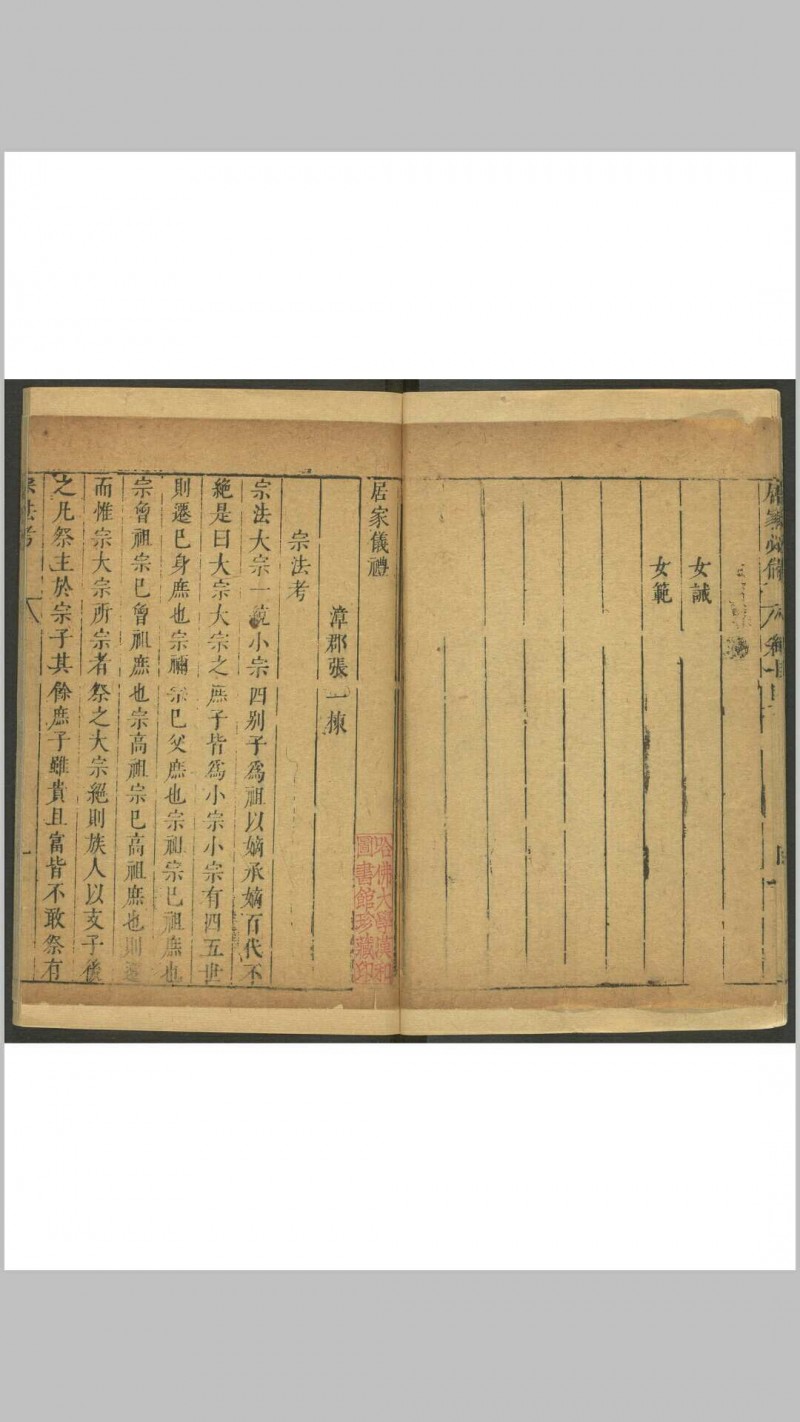 居家必備
女誡
女範
居家儀禮
漳郡張一棟
宗法考
宗法大宗一統小宗四别子爲祖以嫡承嫡百代不
絶是曰大宗大宗之庶子皆爲小宗小宗有四五世
則遷已身庶也宗禰宗已父庶也宗祖宗已祖庶也
宗曾祖宗已曾祖庶也宗高祖宗已高祖庶也則遷
而惟宗大宗所宗者祭之大宗絶則族人以支子後
之凡祭主於宗子其餘庶子雖貴且富皆不敢祭有
宗法考
一
哈佛大學漢和
圖書館珍藏印